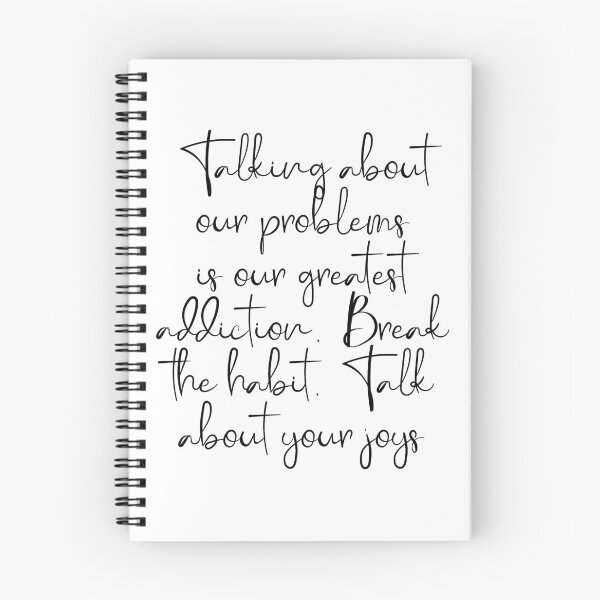 Talking about
our problems
is our greatest
addiction. Break
the habit. Talk
about your joys